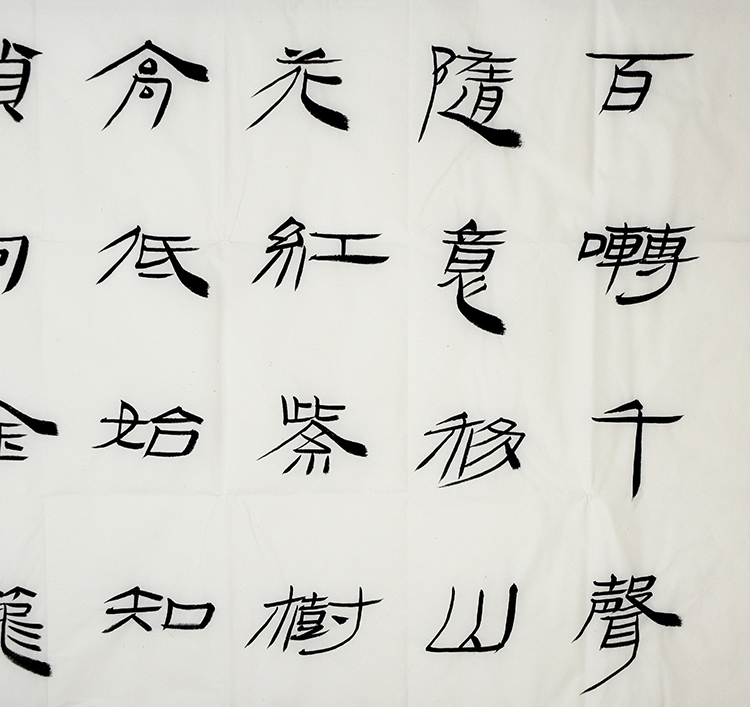 百囀千聲
隨意移山
花紅紫樹
高低始知